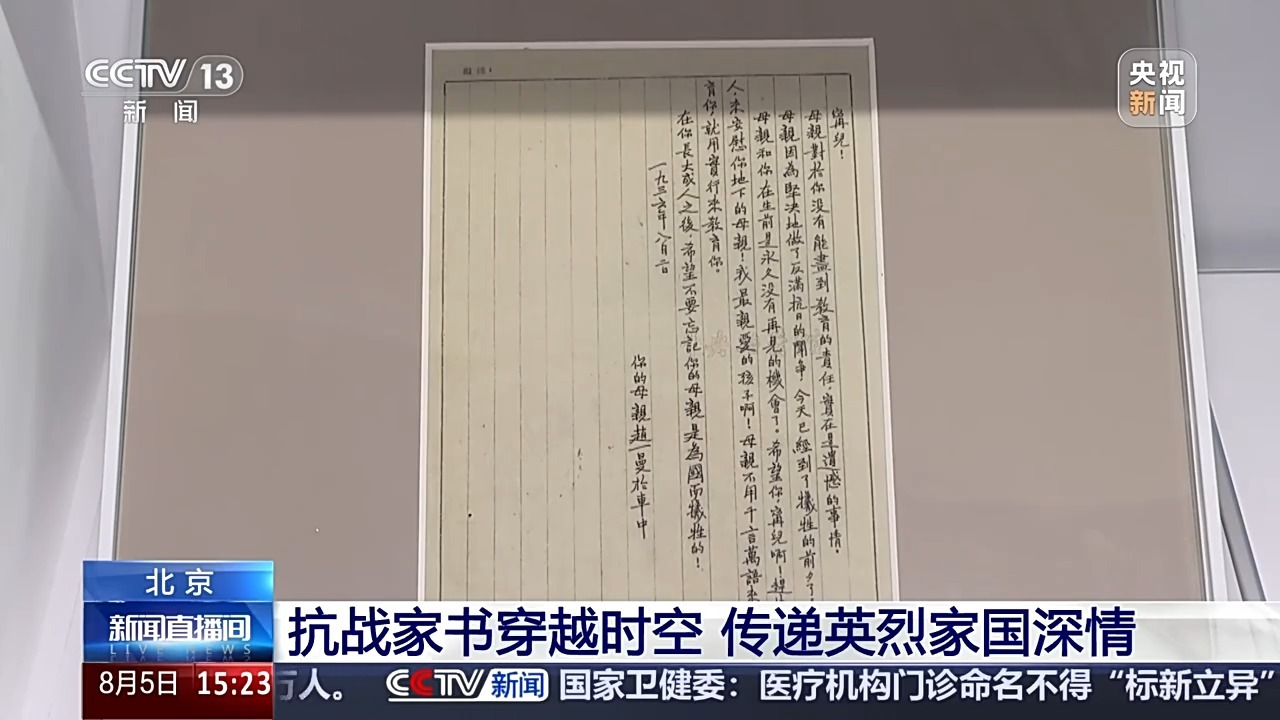 CCTV 13
新闻
央视
新闻
寗兒！
母親對於你没有能盡到教育的責任，實在是遺憾的事情。
母親因為堅決地做了反滿抗日的鬭争，今天已經到了犧牲的前夕了。
母親和你在生前是永久没有再見的機會了。希望你，寗兒啊！趕
人，來安慰你地下的母親！我最親愛的孩子啊！母親不用千言萬語來
育你，就用實行來教育你。
在你長大成人之後，希望不要忘記你的母親是為國而犧牲的！
一九三六年八月二日
你的母親趙一曼於車中
北京
新闻直播间
LIVE NEWS
抗战家书穿越时空 传递英烈家国深情
8月5日 15:23
万人。 CCTV新闻 国家卫健委：医疗机构门诊命名不得“标新立异”